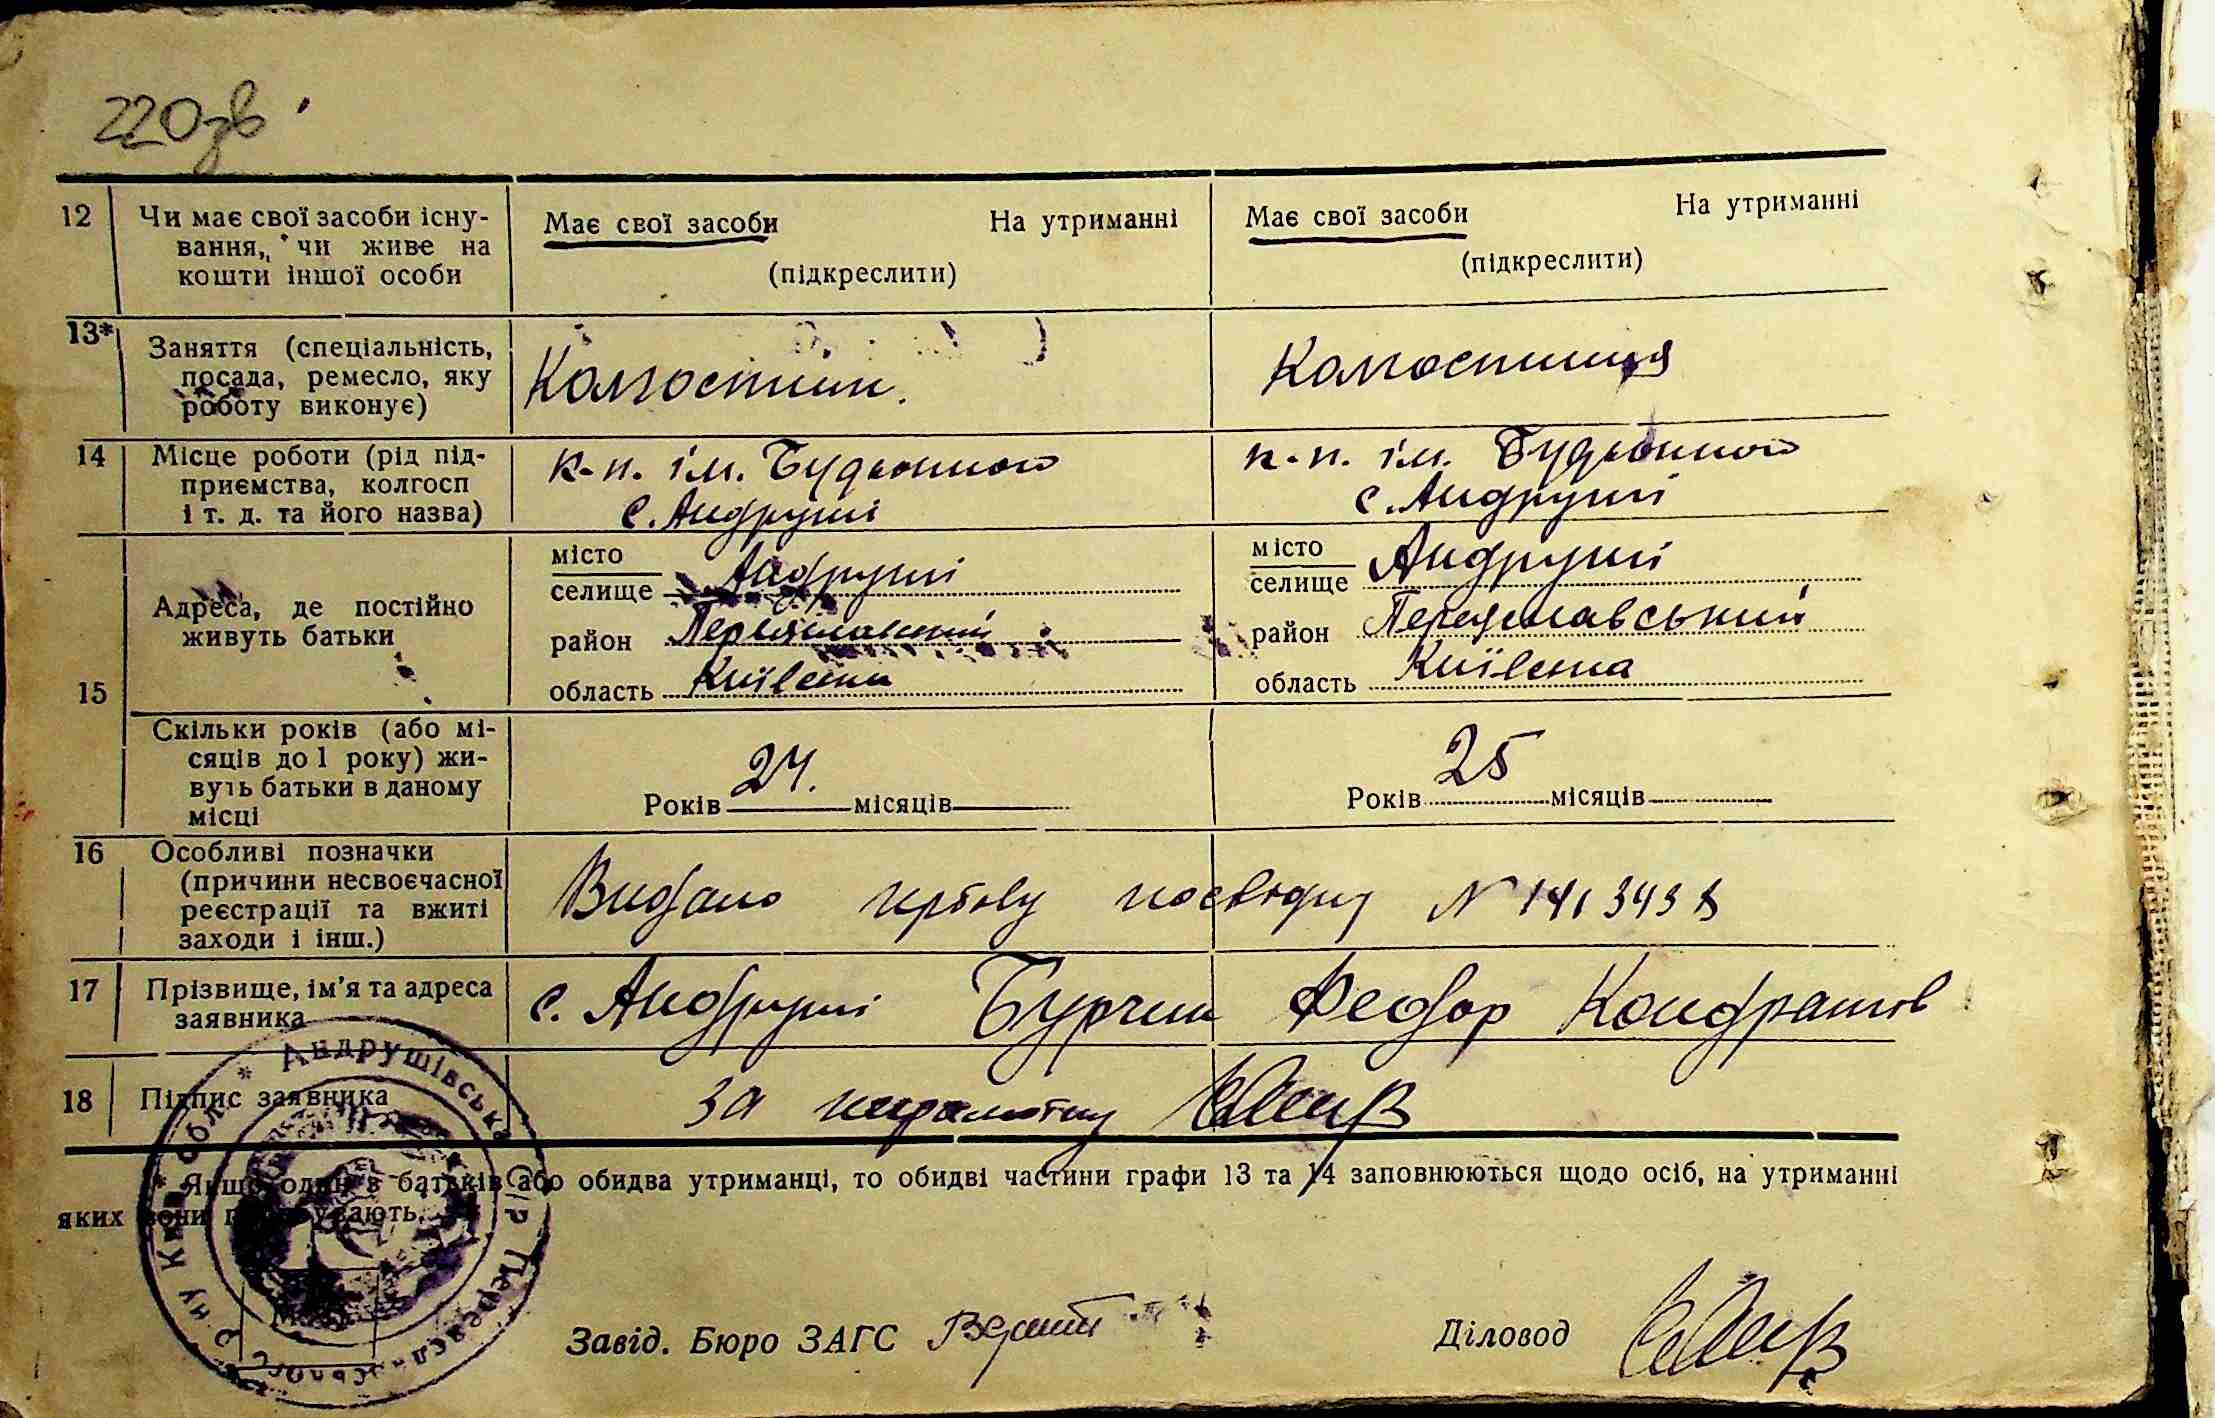 220зв
12 Чи має свої засоби існу- Має свої засоби На утриманні Має свої засоби На утриманні
вання, чи живе на
кошти іншої особи (підкреслити) (підкреслити)
13* Заняття (спеціальність,
посада, ремесло, яку Колгоспник. Колгоспниця
роботу виконує)
14 Місце роботи (рід під- к-п. ім. Будьонного к-п. ім. Будьонного
приємства, колгосп
і т. д. та його назва) с. Андруші с. Андруші
15 Адреса, де постійно
живуть батьки
місто місто
селище Андруші селище Андруші
район Переяславський район Переяславський
область Київська область Київська
Скільки років (або мі-
сяців до 1 року) жи-
вуть батьки в даному
місці
Років 24. місяців Років 25 місяців
16 Особливі позначки
(причини несвоєчасної
реєстрації та вжиті
заходи і інш.)
Видано посвідку N
17 Прізвище, ім'я та адреса
заявника
с. Андруші Бурчик Федор Кондратов
18 Підпис заявника за неграмотну
* Якщо один з батьків або обидва утриманці, то обидві частини графи 13 та 14 заповнюються щодо осіб, на утриманні
яких вони перебувають.
Завід. Бюро ЗАГС Діловод
* Андрушівська С/Р Переяславського